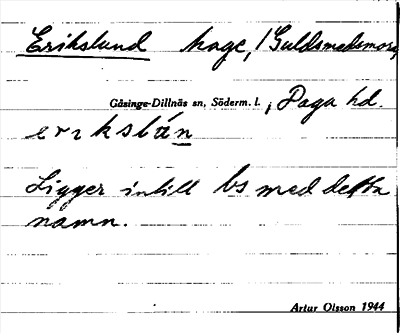 Erikslund hage, / Guldsmedsmora,
Gåsinge-Dillnäs sn, Söderm. l., Daga hd.
erikslún
Ligger intill bs med detta
namn.
Artur Olsson 1944